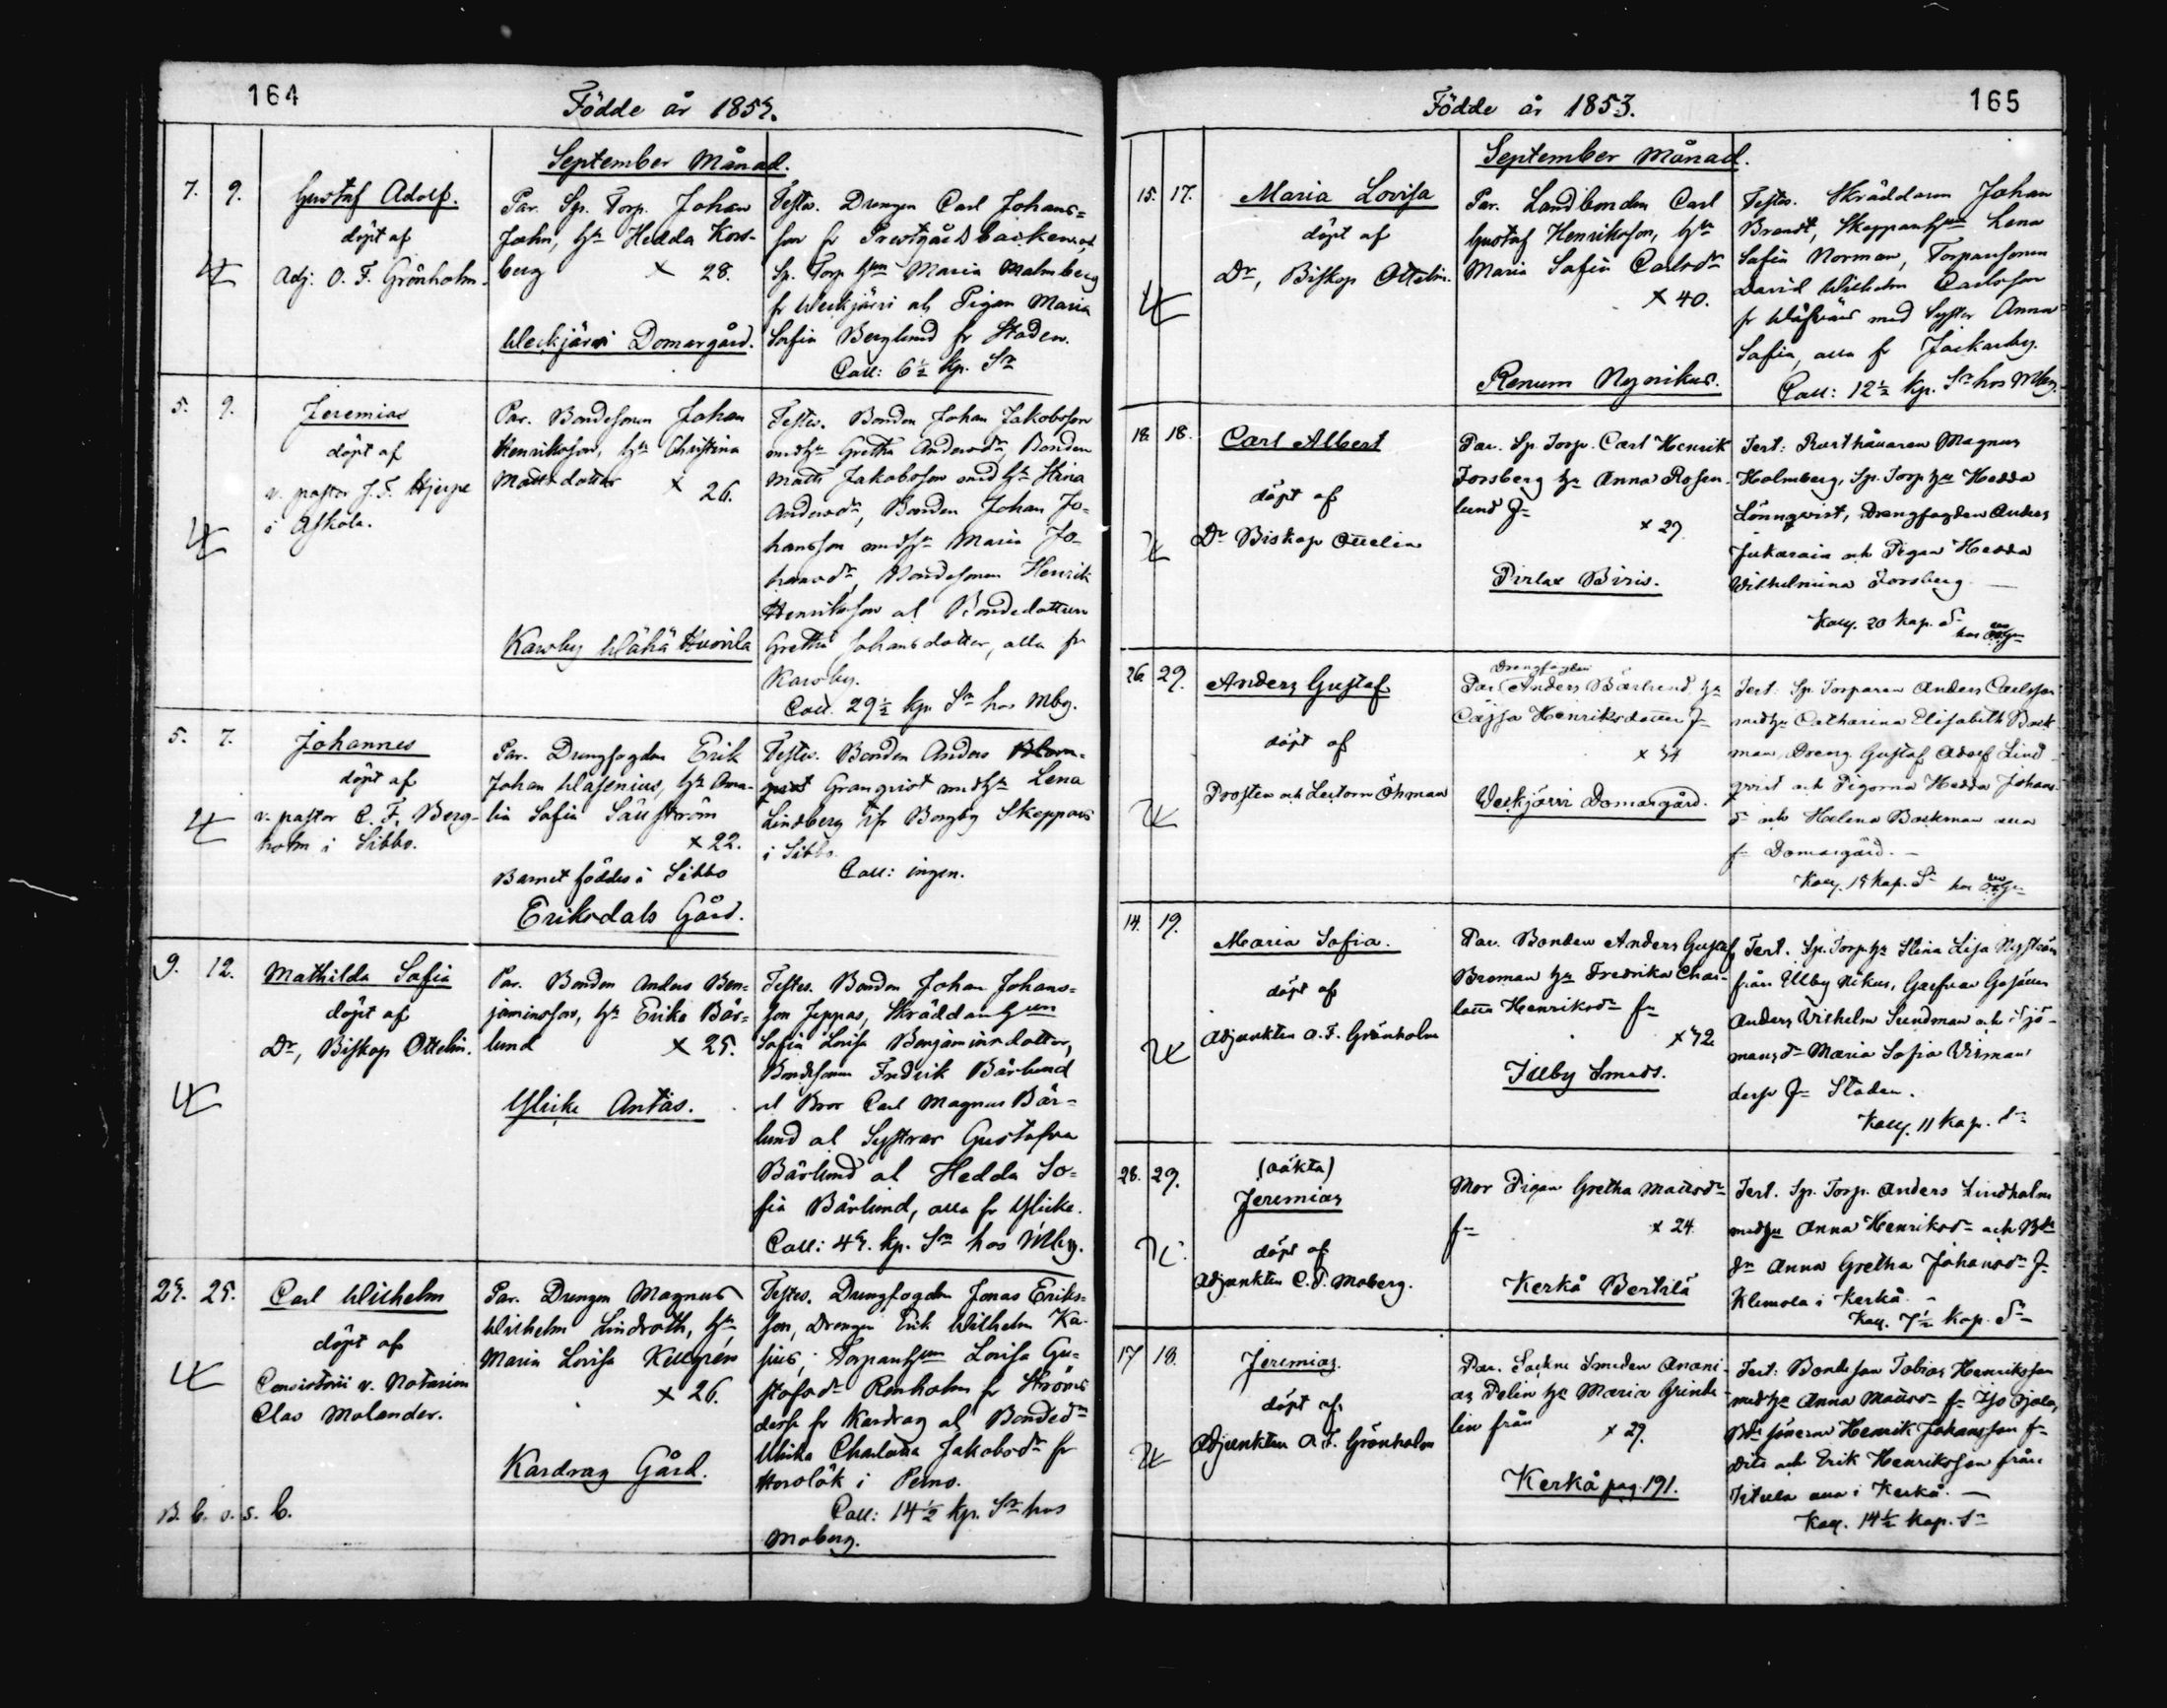 164
Födde år 1853.
September Månad.
7. 9. Gustaf Adolf.
döpt af
Adj: O. F. Grönholm.
Par. Sp. Torp. Johan
John, hu Hedda Kors-
berg x 28.
Weckjärvi Domargård.
Testes. Drengen Carl Johans=
son fr Prestgårdsbacken, och
Sp. Torp hun Maria Malmberg
fr Weckjärvi och Pigan Maria
Sofia Berglund fr Staden.
Coll: 6½ kp. Sr
5. 9. Jeremias
döpt af
v. pastor J. F. Hjerpe
i Askola.
Par. Bondesonen Johan
Henriksson, hu Christina
Mattsdotter x 26.
Karsby Wähä Huovila
Testes. Bonden Johan Jakobsson
med hu Gretha Andersdr, Bonden
Matts Jakobsson med hu Stina
Andersdr, Bonden Johan Jo=
hansson med hu Maria Jo=
hansdr, Bondesonen Henrik
Henriksson och Bondedottern
Gretha Johansdotter, alla fr
Karsby.
Coll. 29½ kp. Sr hos Mbg.
5. 7. Johannes
döpt af
v. pastor C. F. Berg-
holm i Sibbo.
Par. Drengfogden Erik
Johan Wasenius, hu Ama-
lia Sofia Sällström
x 22.
Barnet föddes i Sibbo
Eriksdals Gård.
Testes. Bonden Anders Blom-
qvist Granqvist med hu Lena
Lindberg fr Borgby Skeppars
i Sibbo.
Coll: ingen.
9. 12. Mathilda Sofia
döpt af
Dr, Biskop Ottelin.
Par. Bonden Anders Ben=
jaminsson, hu Erika Bär=
lund x 25.
Ylike Antäs.
Testes. Bonden Johan Johans=
son Jeppas, Skräddarhun
Sofia Lovisa Benjaminsdotter,
Bondesonen Fredrik Bärlund
och Bror Carl Magnus Bär=
lund och Systrar Gustafva
Bärlund och Hedda So=
fia Bärlund, alla fr Ylike.
Coll: 45. kp. Sr hos Mbg.
25. 25. Carl Wilhelm
döpt af
Consistorii v. Notarien
Clas Molander.
Par. Drengen Magnus
Wilhelm Lindroth, hu
Maria Lovisa Kellgrén
x 26.
Kardrag Gård.
Testes. Drengfogden Jonas Eriks=
son, Drengen Erik Wilhelm Ka-
sius, Torparehun Lovisa Gu=
stafsdr Renholm fr Ströms
dessa fr Kardrag och Bondedr
Ulrika Charlotta Jakobsdr fr
Horslök i Perno.
Coll: 14½ kp. Sr hos
Moberg.
B. C. v. s. C.
165
Födde år 1853.
September Månad.
15. 17. Maria Lovisa
döpt af
Dr, Biskop Ottelin.
Par. Landbonden Carl
Gustaf Henriksson, hu
Maria Sofia Carlsdr
x 40.
Renum Nygrikus.
Testes. Skräddaren Johan
Brandt, Skepparehun Lena
Sofia Norman, Torparsonen
David Wilhelm Carlsson
fr med Syster Anna
Sofia, alla fr Jackarby.
Coll: 12½ kp. Sr hos Mbg.
18. 18. Carl Albert
döpt af
Dr Biskop Ottelin
Par. Sp. Torp. Carl Henrik
Forsberg hu Anna Rosen-
lund fr
x 27.
Pirlax Biris.
Test: Magnus
Holmberg, Sp. Torp hu Hedda
Lönnqvist, Drengfogden Anders
Jukarain och Pigan Hedda
Wilhelmina Forsberg
Koll. 20 kop. S. hos
26. 29. Anders Gustaf
döpt af
Prosten och Lectorn Öhman
Drengfogden
Par. Anders Bärlund, hu
Cajsa Henriksdotter fr
x 34
Veckjärvi Domargård.
Test: Sp. Torparen Anders Carlsson
med hu Catharina Elisabeth Back-
man, Dreng. Gustaf Adolf Lind-
qvist och Pigorna Hedda Johans-
dr och Helena Backman alla
fr Domargård.
Koll. 15 kop. Sr hos
14. 19. Maria Sofia.
döpt af
Adjunkten A. F. Grönholm
Par. Bonden Anders Gustaf
Broman hu Fredrika Char-
lotta Henriksdr fr
x 42
Illby Smeds.
Test. Sp. Torp. hu Stina Lisa Nyström
från Illby Nikus, Garfvar Gesällen
Anders Wilhelm Sundman och Sjö-
mansdr Maria Sofia Virman
desse fr Staden.
Koll. 11 kop. Sr
28. 29. (oäkta)
Jeremias
döpt af
Adjunkten C. F. Moberg.
Mor Pigan Gretha Mattsdr
fr x 24
Kerkå Bertilä
Test. Sp. Torp. Anders Lindholm
med hu Anna Henriksdr och Bde
dr Anna Gretha Johansdr fr
Klemola i Kerkå.
Koll. 7½ kop. Sr
17 18. Jeremias.
döpt af
Adjunkten A. F. Grönholm
Par. Sockne Smeden Anani-
as Pelin hu Maria Grinde-
lin från
x 29.
Kerkå pag. 191.
Test: Bondeson Tobias Henriksson
med hu Anna Mattsdr fr Iso Ojala,
Bde sönerne Henrik Johansson fr
Dito och Erik Henriksson från
alla i Kerkå.
Koll. 14½ kop. Sr